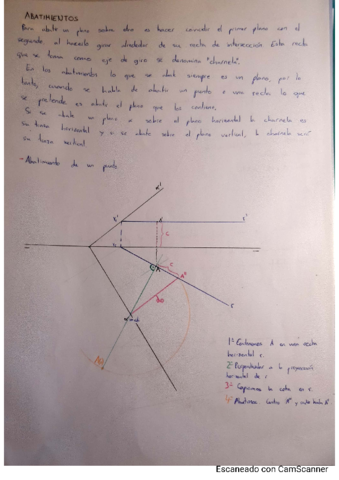 ABATIMENTOS
Para abatir un plano sobre otro es hacer coincidir el primer plano con el
segundo, al hacerlo girar alrededor de su recta de intersección. Esta recta
que se toma como eje de giro se denomina "charnela".
En los abatimientos lo que se abate siempre es un plano, por lo
tanto, cuando se habla de abatir un punto o una recta lo que
se pretende es abatir el plano que los contiene.
Si se abate un plano α sobre el plano horizontal la charnela es
su traza horizontal y si se abate sobre el plano vertical, la charnela será
su traza vertical.
- Abatimiento de un punto.
α'
r'
c
c
A°
r
1º Contenemos A en una recta
horizontal r.
2º Perpendicular a la proyección
horizontal de r
3º Copiamos la cota en r.
4º Abatimos
Escaneado con CamScanner